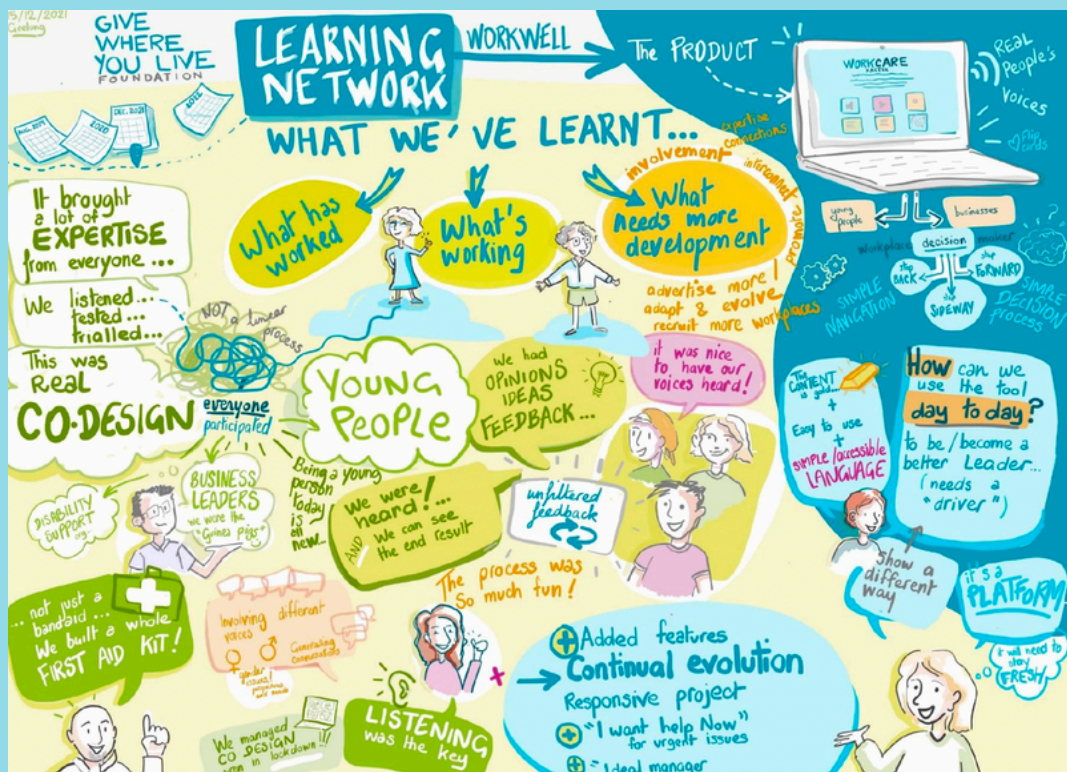 5/12/2021
Geelong
GIVE
WHERE
YOU LIVE
FOUNDATION
LEARNING
NETWORK
WORKWELL
The PRODUCT
WORKCARE
REAL
PEOPLE'S
VOICES
AUG. 2019
2020
DEC. 2021
2022
WHAT WE'VE LEARNT...
What has
worked
What's
working
What
needs more
development
involvement
expertise
connections
promote
advertise more!
adapt & evolve
recruit more workplaces
young
people
businesses
workplace decision maker
step
BACK
step
FORWARD
step
SIDEWAY
SIMPLE
NAVIGATION
SIMPLE
DECISION
PROCESS
It brought
a lot of
EXPERTISE
from everyone...
We listened...
tested...
trialled...
NOT a linear
process
This was
REAL
CO-DESIGN
everyone
participated
YOUNG
PEOPLE
we had
OPINIONS
IDEAS
FEEDBACK...
it was nice
to have our
voices heard!
The
CONTENT
is gold...
+
Easy to use
+
SIMPLE/accessible
LANGUAGE
How can we
use the tool
day to day?
to be/become a
better Leader...
(needs a
"driver")
DISABILITY
SUPPORT
org.
BUSINESS
LEADERS
"we were the
"Guinea Pigs"
Being a young
person
today
is
all
new...
we were
heard!...
AND We can see
the end result
unfiltered
feedback
The process was
So much fun!
Show a
different
way
it's a
PLATFORM!
it will need to
stay
FRESH!
... not just a
bandaid...
We built a whole
FIRST AID KIT!
Involving different
voices
gender
issues!
Generating
We managed
CO DESIGN
even in lockdown...
LISTENING
was the key
+ Added features
Continual evolution
Responsive project
+ "I want help Now"
for urgent issues
+ "Ideal manager